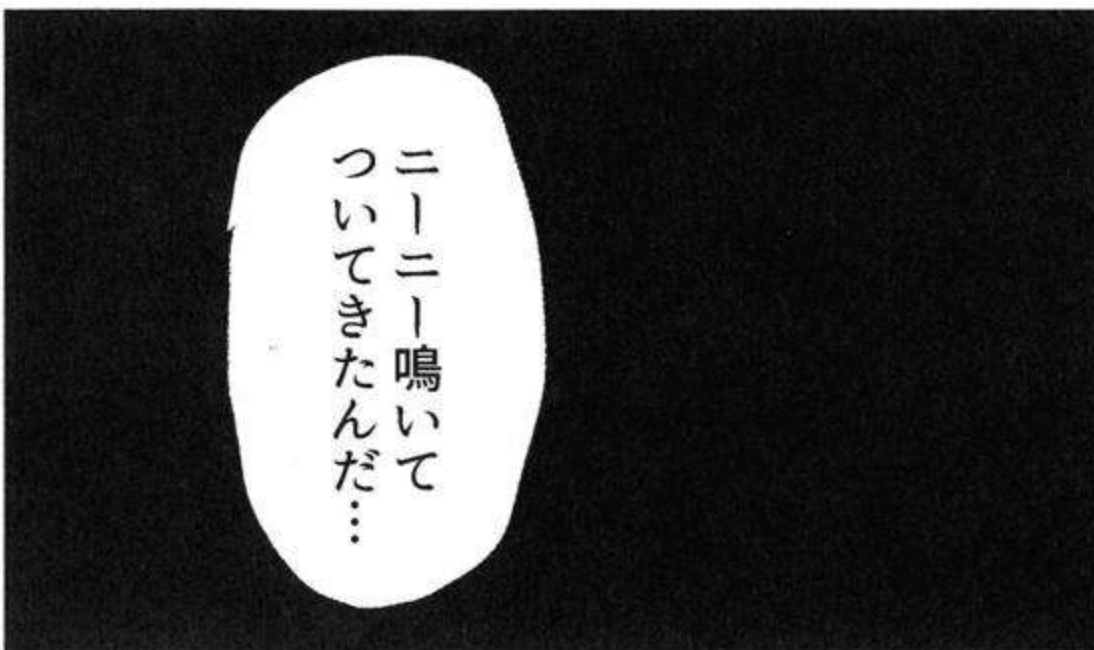 ニーニー鳴いて
ついてきたんだ…